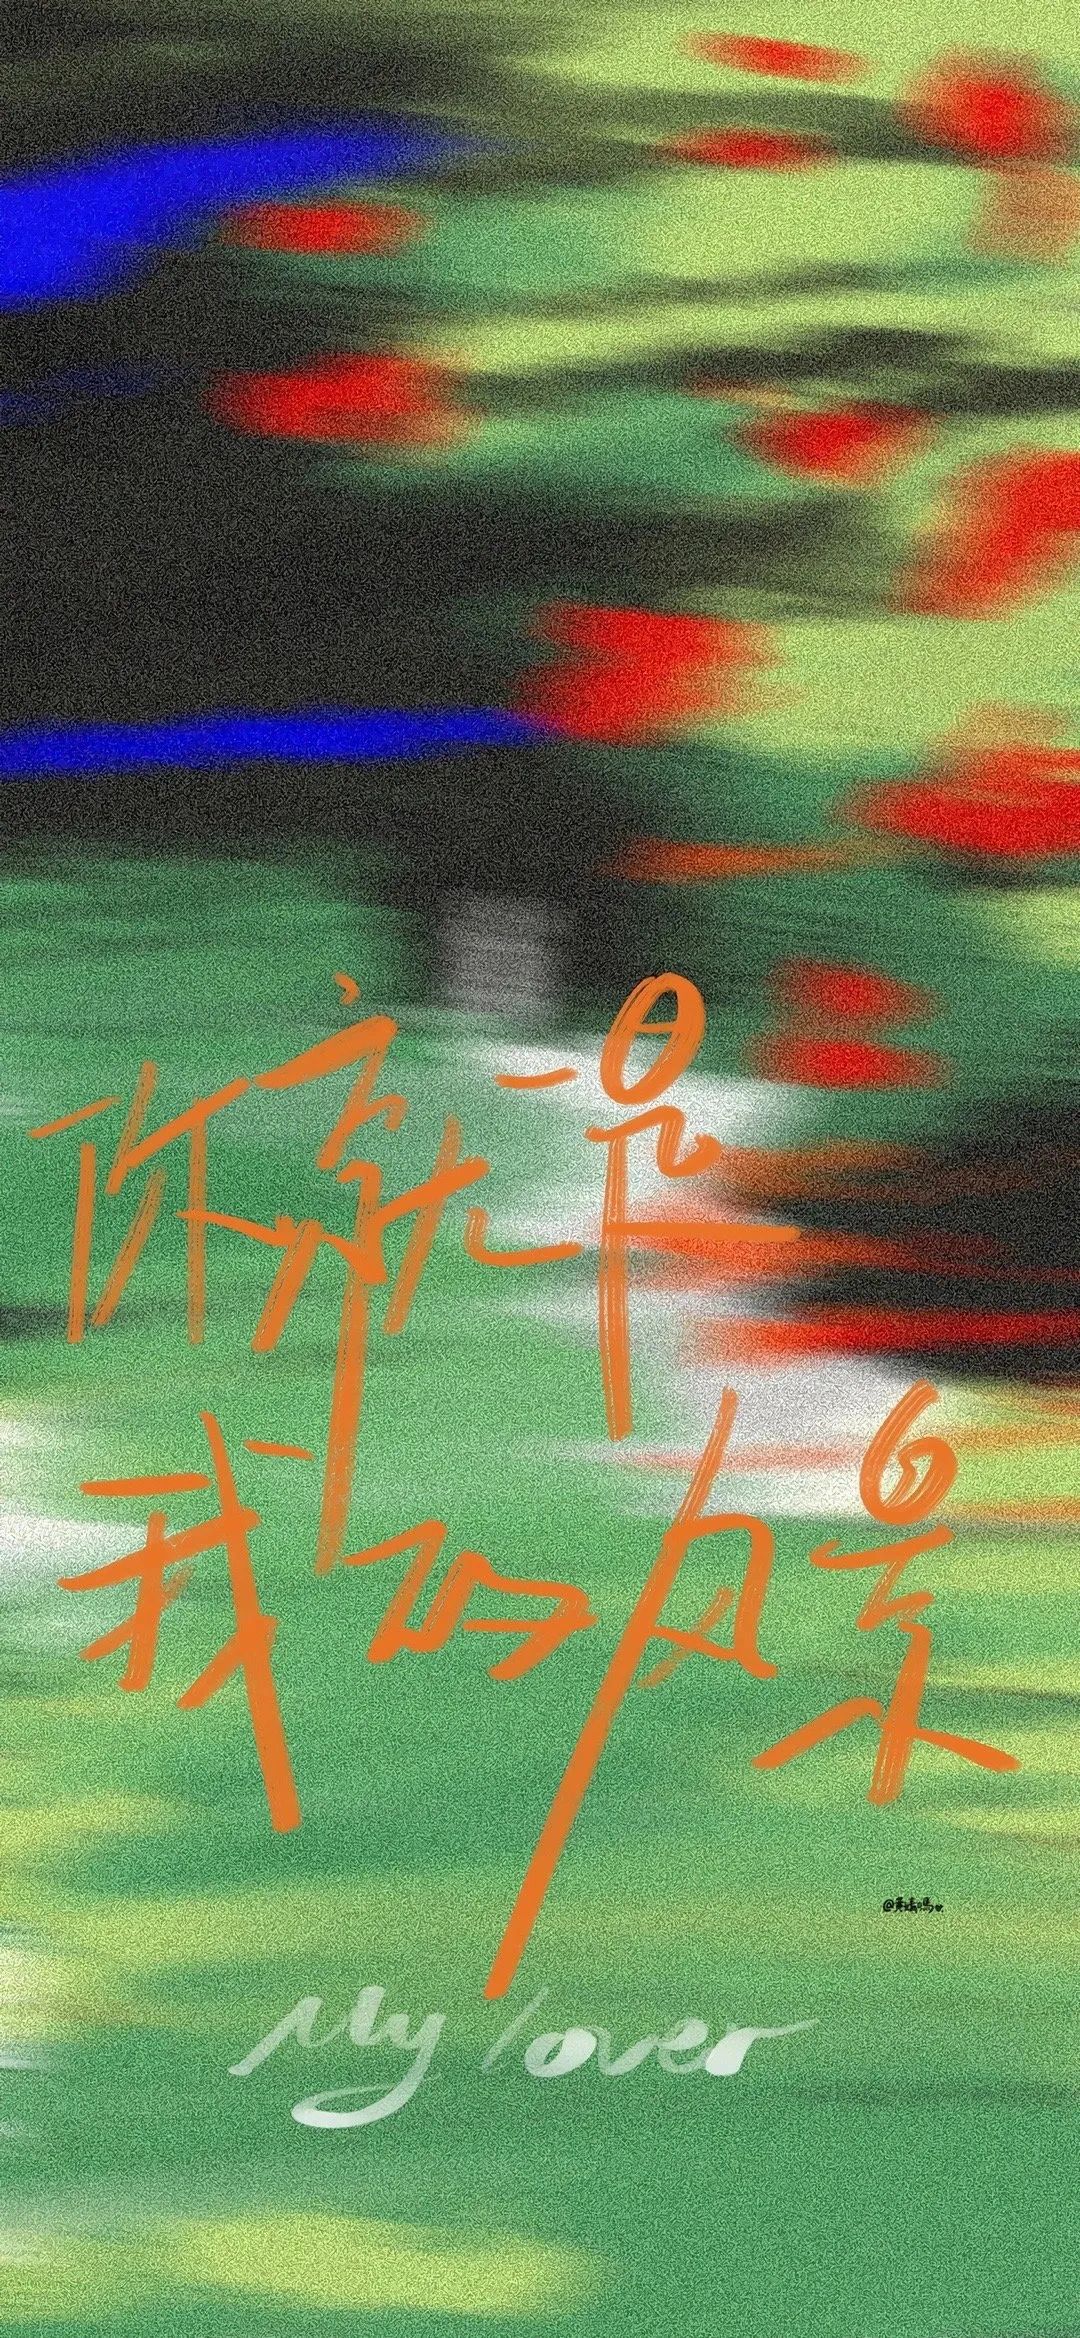 你就是
我的风景
My lover